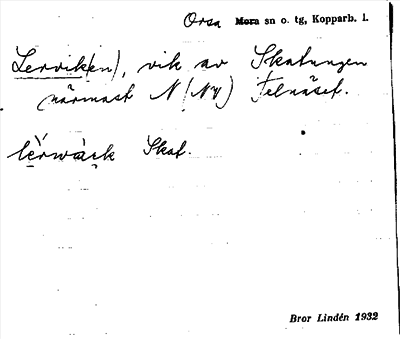 Orsa Mora sn o. tg, Kopparb. l.
Lervik(en), vik av Skatungen
närmast N (NV) Telnäset.
lèrwàc̣k Skat.
Bror Lindén 1932